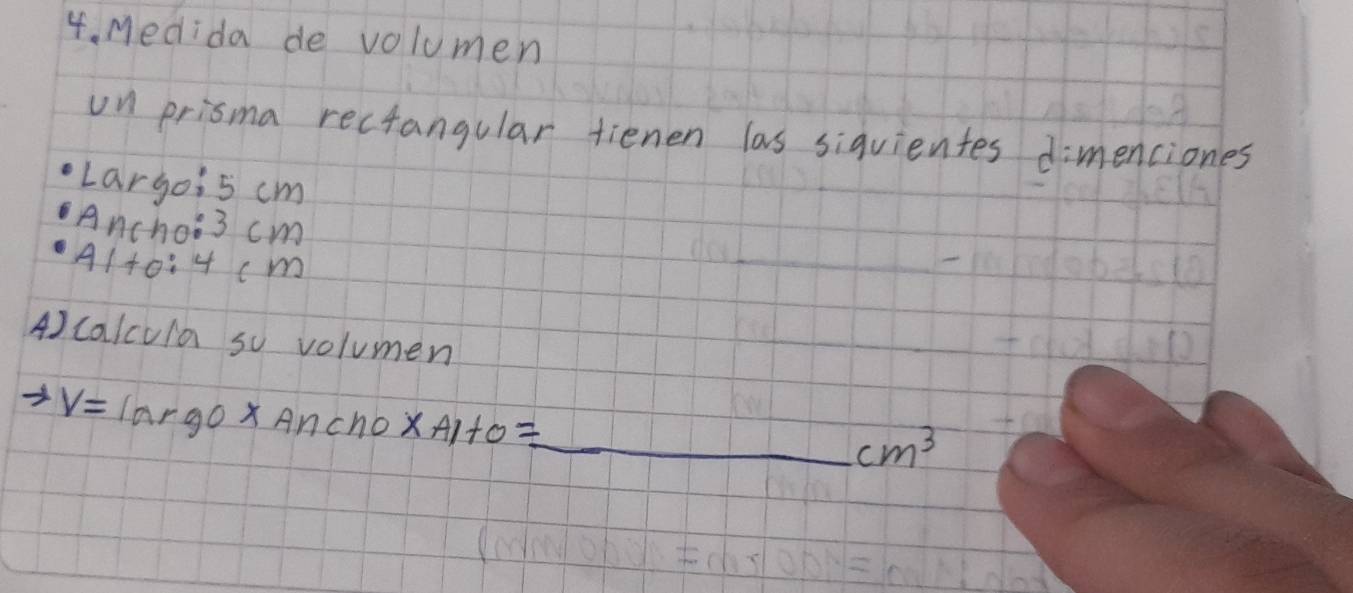 4. Medida de volumen
un prisma rectangular tienen las siguientes dimenciones
• Largo: 5 cm
• Ancho: 3 cm
• Alto: 4 cm
A) calcula su volumen
→ V = largo x Ancho x Alto = __________ cm³